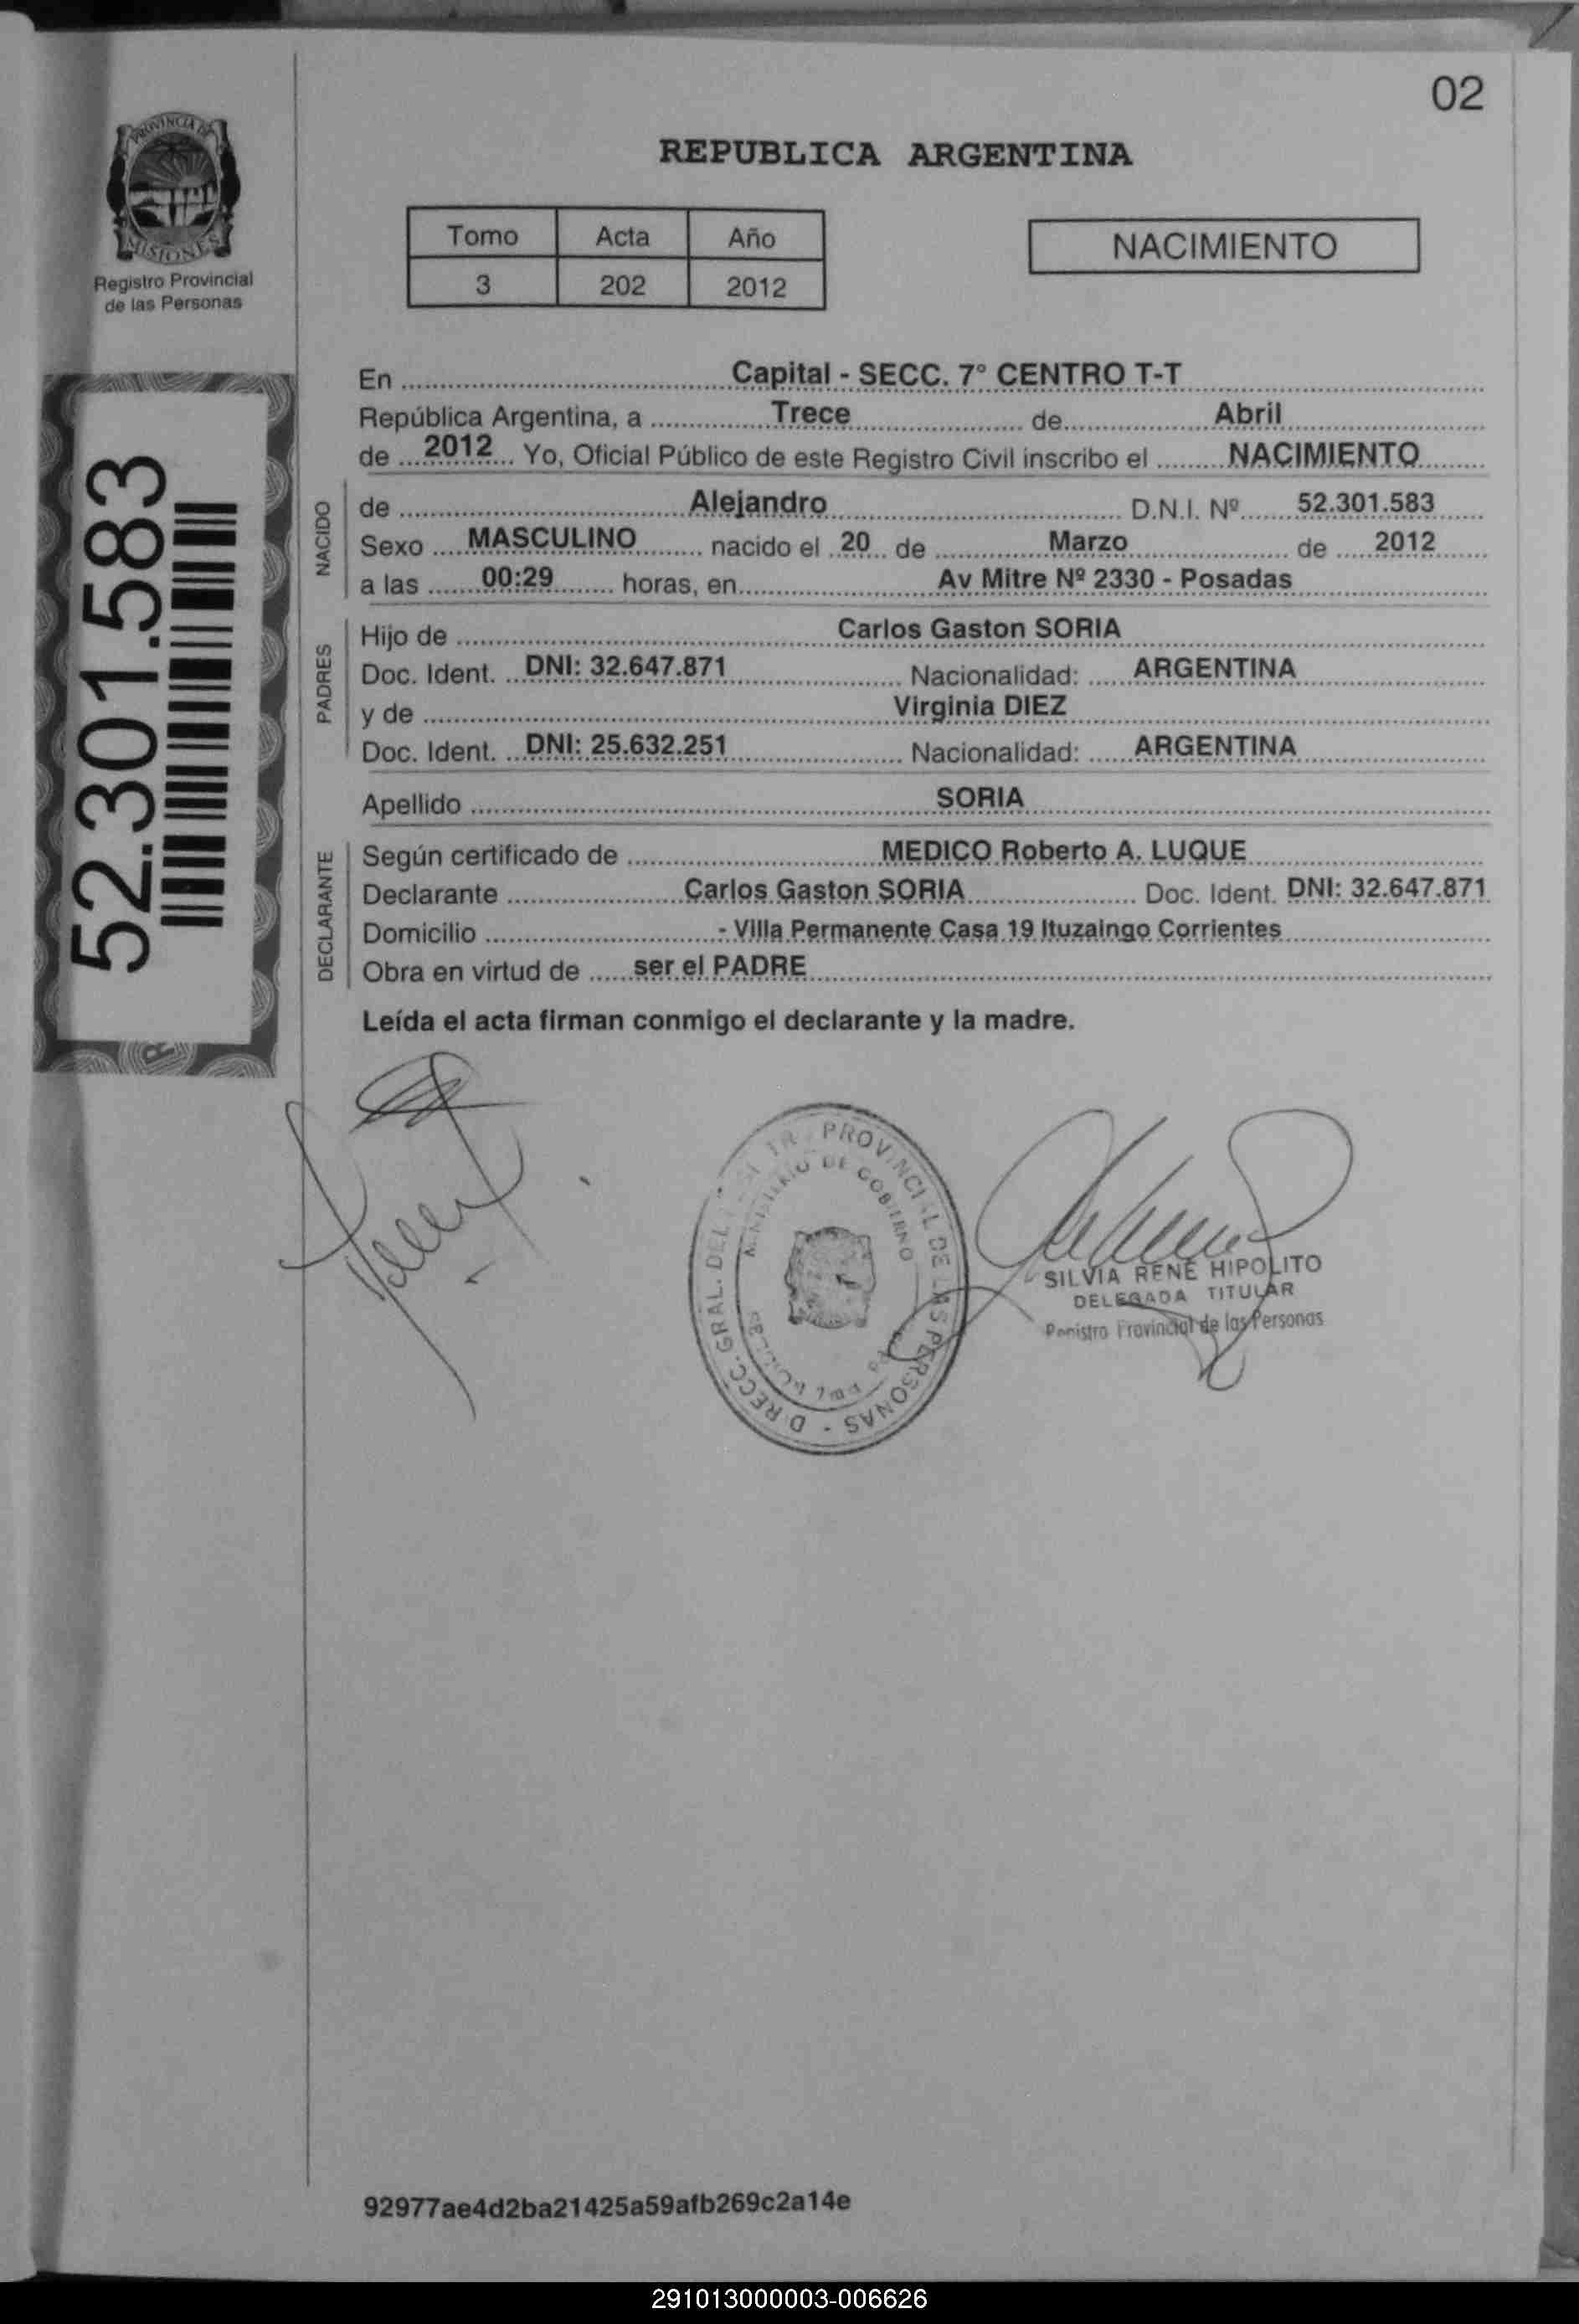 02
PROVINCIA DE
MISIONES
Registro Provincial
de las Personas
REPUBLICA ARGENTINA
Tomo Acta Año
3 202 2012
NACIMIENTO
52.301.583
En Capital - SECC. 7º CENTRO T-T
República Argentina, a Trece de Abril
de 2012 Yo, Oficial Público de este Registro Civil inscribo el NACIMIENTO
NACIDO
de Alejandro D.N.I. Nº 52.301.583
Sexo MASCULINO nacido el 20 de Marzo de 2012
a las 00:29 horas, en Av Mitre Nº 2330 - Posadas
PADRES
Hijo de Carlos Gaston SORIA
Doc. Ident. DNI: 32.647.871 Nacionalidad: ARGENTINA
y de Virginia DIEZ
Doc. Ident. DNI: 25.632.251 Nacionalidad: ARGENTINA
Apellido SORIA
DECLARANTE
Según certificado de MEDICO Roberto A. LUQUE
Declarante Carlos Gaston SORIA Doc. Ident. DNI: 32.647.871
Domicilio - Villa Permanente Casa 19 Ituzaingo Corrientes
Obra en virtud de ser el PADRE
Leída el acta firman conmigo el declarante y la madre.
DIRECC. GRAL. DEL PROVINCIAL DE LAS PERSONAS -
MINISTERIO DE GOBIERNO
SILVIA RENE HIPOLITO
DELEGADA TITULAR
Provincial de las Personas
92977ae4d2ba21425a59afb269c2a14e
291013000003-006626